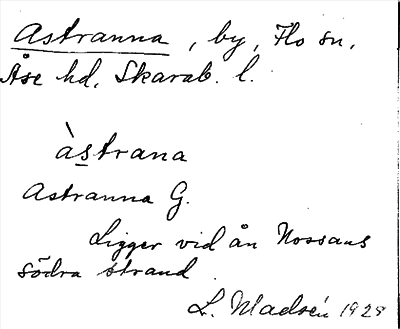 Astranna, by, Flo sn,
Åse hd, Skarab. l.
àstrana
Astranna G.
Ligger vid ån Nossans
södra strand.
L. Madsén 1928